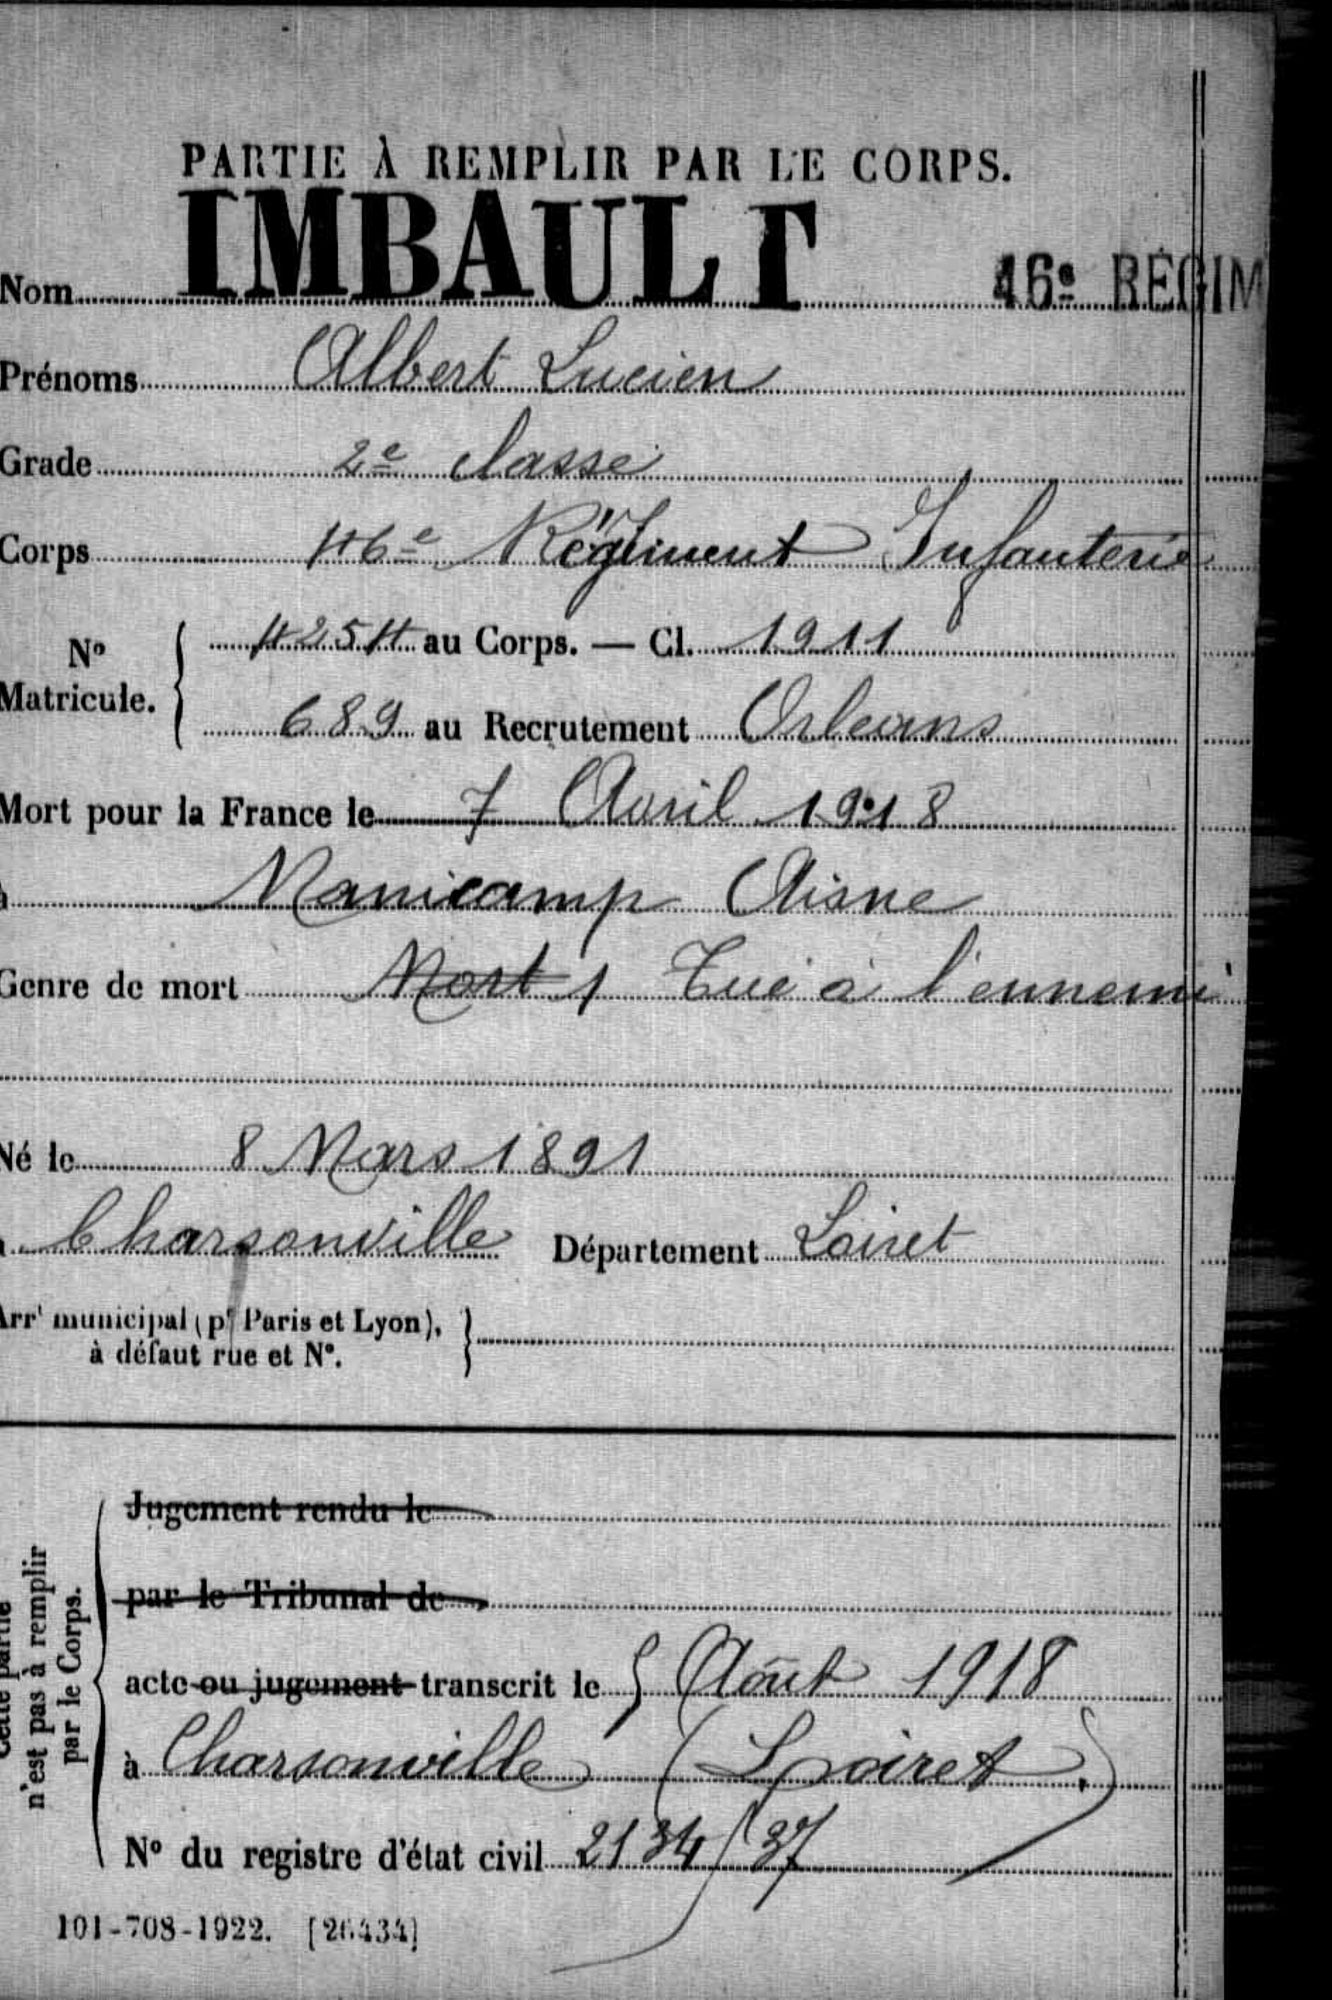 PARTIE À REMPLIR PAR LE CORPS.
Nom IMBAULT 46e RÉGIM
Prénoms Albert Lucien
Grade 2e classe
Corps 46e Régiment Infanterie
No Matricule. { 4254 au Corps. — Cl. 1911
689 au Recrutement Orleans
Mort pour la France le 7 Avril 1918
à Manicamp Aisne
Genre de mort Mort Tué à l'ennemi
Né le 8 Mars 1891
à Charsonville Département Loiret
Arrt municipal (pr Paris et Lyon), à défaut rue et No. }
Cette partie n'est pas à remplir par le Corps.
Jugement rendu le
par le Tribunal de
acte ou jugement transcrit le 5 Août 1918
à Charsonville (Loiret)
No du registre d'état civil 2134/37
101-708-1922. [26434]